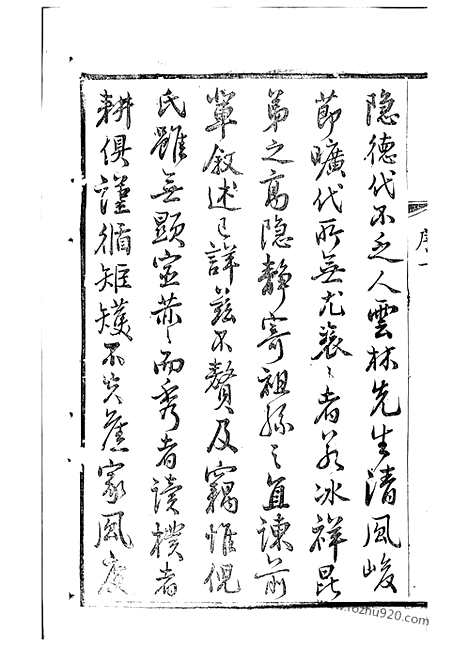 隐德代不乏人雲林先生清風峻
節曠代所無尤褎々者若冰祥昆
弟之高隐静寄祖孫之直諫前
輩敘述已詳茲不贅及竊惟倪
氏雖無顯宦恭々而秀者读樸者
耕俱謹循矩矱不失舊家風度
序一
www.rozhu920.com